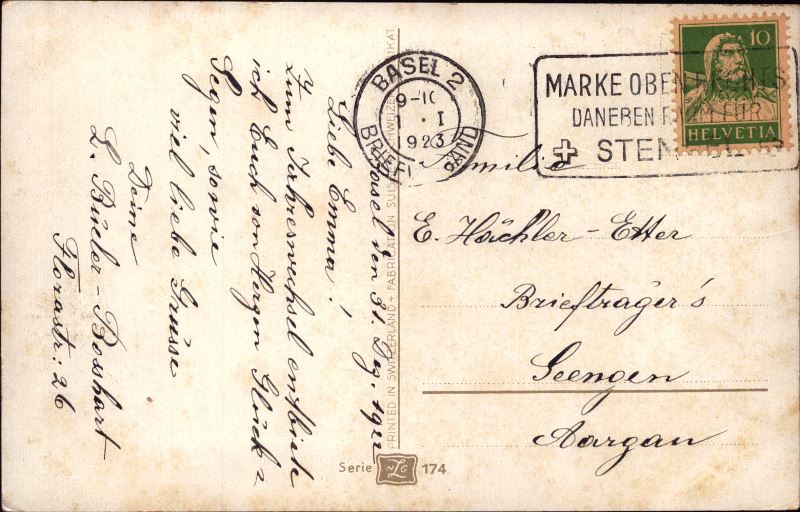 Basel den 31. Dez. 1922
Liebe Emma!
Zum Jahreswechsel entbiete
ich Euch von Herzen Glück &
Segen, sowie
viel liebe Grüsse
Deine
L. Buder-Bosshart
Florastr: 26
PRINTED IN SWITZERLAND + FABRICATION SUISSE
Serie 174
BASEL 2
9-10
1 · I
1923
MARKE OBEN RECHTS
DANEBEN RAUM FÜR
STEMPEL
10
HELVETIA
Familie
E. Hächler-Etter
Briefträger's
Seengen
Aargau